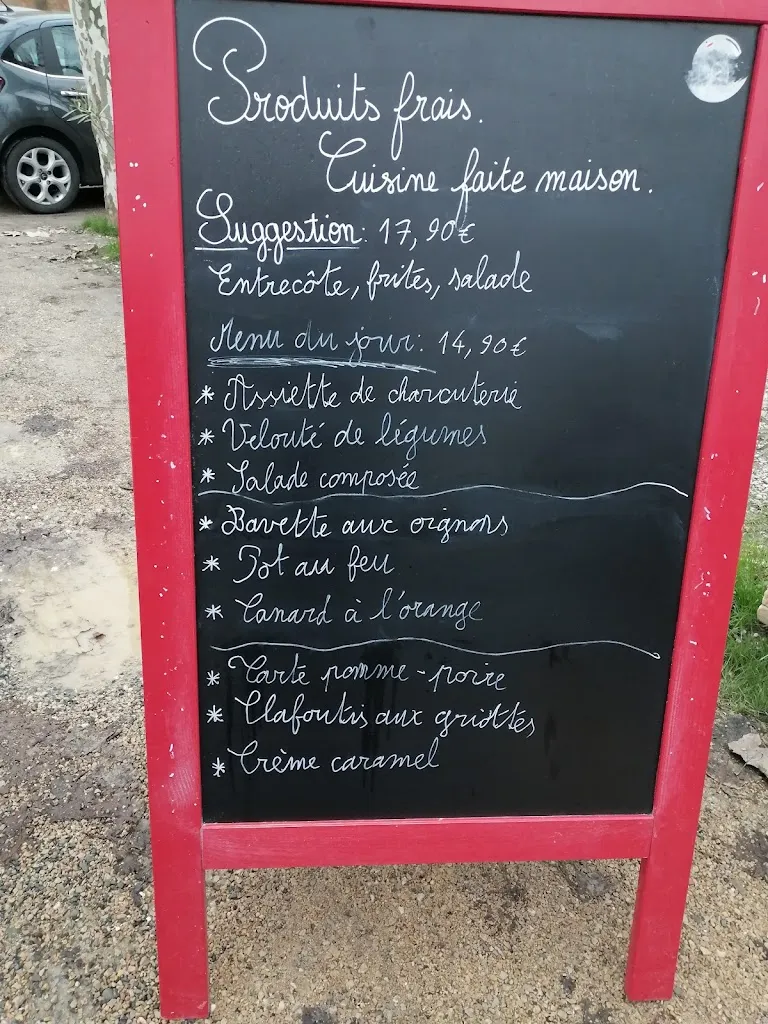 Produits frais.
Cuisine faite maison.
Suggestion: 17,90€
Entrecôte, frites, salade
Menu du jour: 14,90€
* Assiette de charcuterie
* Velouté de légumes
* Salade composée
* Bavette aux oignons
* Pot au feu
* Canard à l'orange
* Tarte pomme-poire
* Clafoutis aux griottes
* Crème caramel